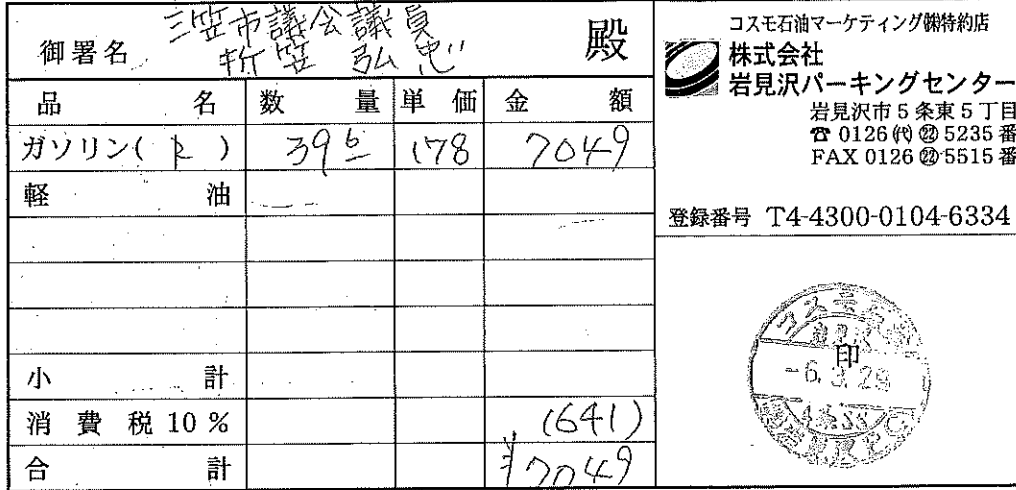 御署名 三笠市議会議員 殿
折笠 弘忠
品名 数量 単価 金額
ガソリン( ) 39.6 178 7049
軽油
小計
消費税10% (641)
合計 ¥7049
コスモ石油マーケティング㈱特約店
株式会社
岩見沢パーキングセンター
岩見沢市5条東5丁目
☎ 0126㈹㉒5235番
FAX 0126㉒5515番
登録番号 T4-4300-0104-6334
印
-6.3.29